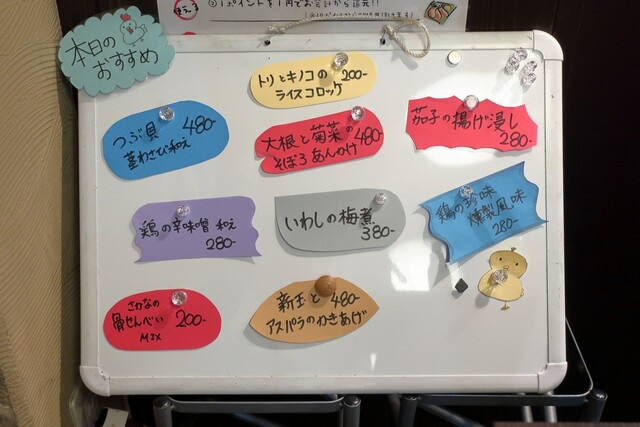 1ポイントを1円でお会計から還元!!
本日の
おすすめ
トリとキノコの 200-
ライスコロッケ
つぶ貝 480-
茎わさび和え
大根と菊菜の 480-
そぼろあんかけ
茄子の揚げ浸し
280-
鶏の辛味噌和え
280-
いわしの梅煮
380-
鶏の珍味
燻製風味
280-
さかなの
骨せんべい 200-
MIX
新玉と 480-
アスパラのかきあげ